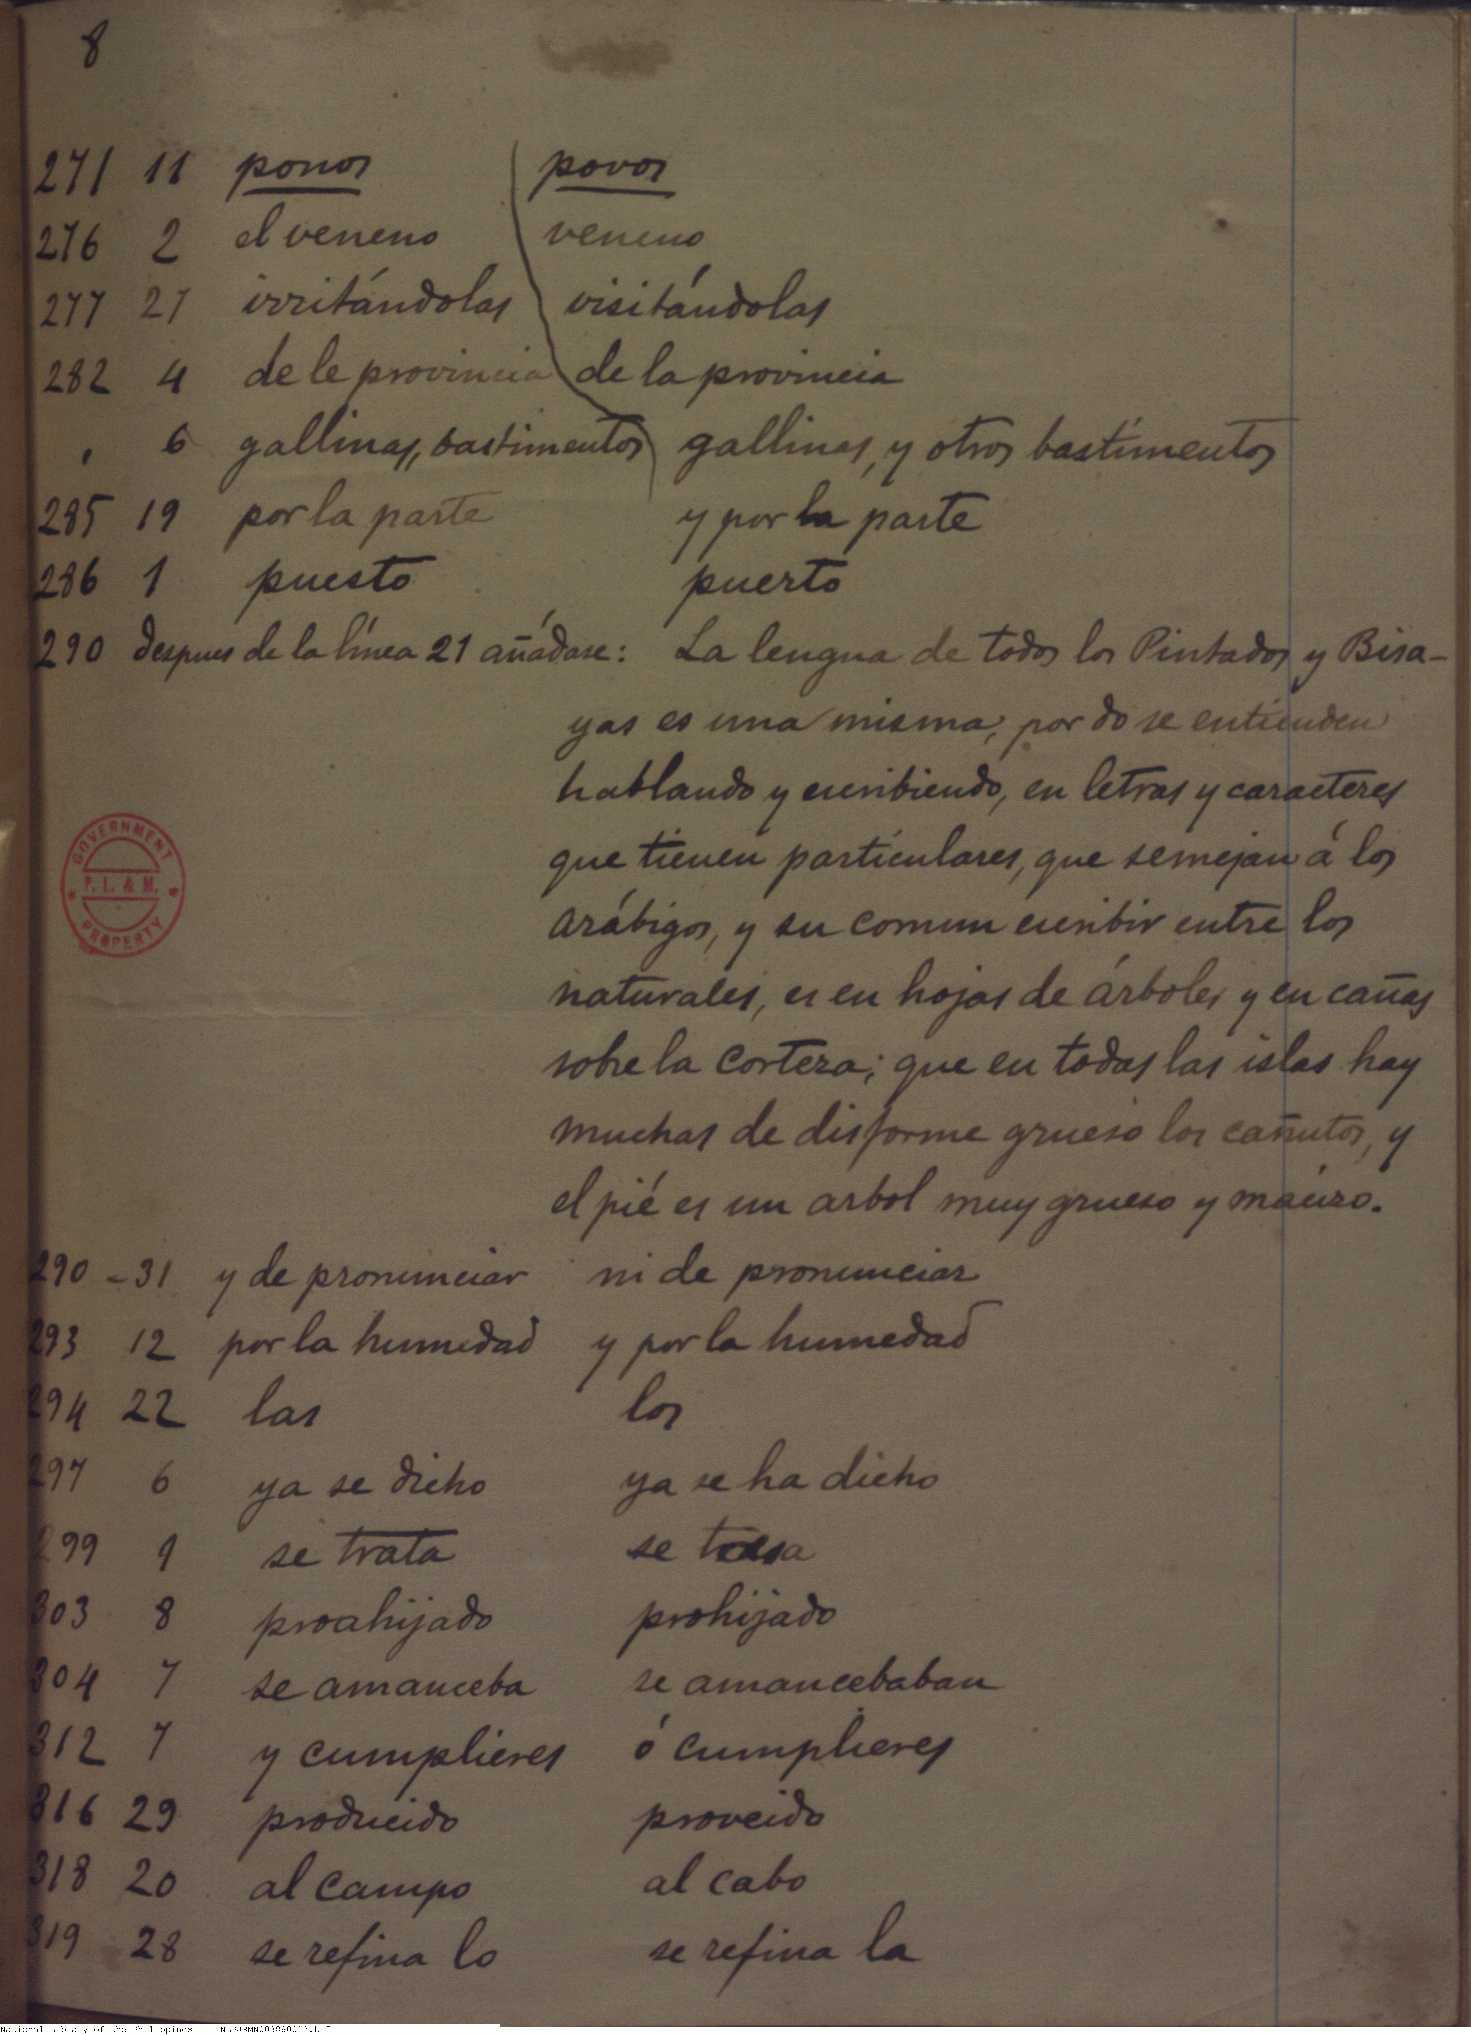 8
271 11 ponos povos
276 2 el veneno veneno
277 27 irritándolas visitándolas
282 4 de le provincia de la provincia
" 6 gallinas, bastimentos gallinas, y otros bastimentos
285 19 por la parte y por la parte
286 1 puesto puerto
290 despues de la línea 21 añádase: La lengua de todos los Pintados y Bisa-
yas es una misma, por do se entienden
hablando y escribiendo, en letras y caracteres
que tienen particulares, que semejan á los
arábigos, y su comun escribir entre los
naturales, es en hojas de árboles y en cañas
sobre la corteza; que en todas las islas hay
muchas de disforme grueso los cañutos, y
el pié es un arbol muy grueso y macizo.
GOVERNMENT
P. L. & M.
PROPERTY
290 - 31 y de pronunciar ni de pronunciar
293 12 por la humedad y por la humedad
294 22 las los
297 6 ya se dicho ya se ha dicho
299 9 se trata se
303 8 proahijado prohijado
304 7 se amanceba se amancebaban
312 7 y cumplieres ó cumplieres
316 29 producido proveido
318 20 al campo al cabo
319 28 se refina lo se refina la
National Library of the Philippines